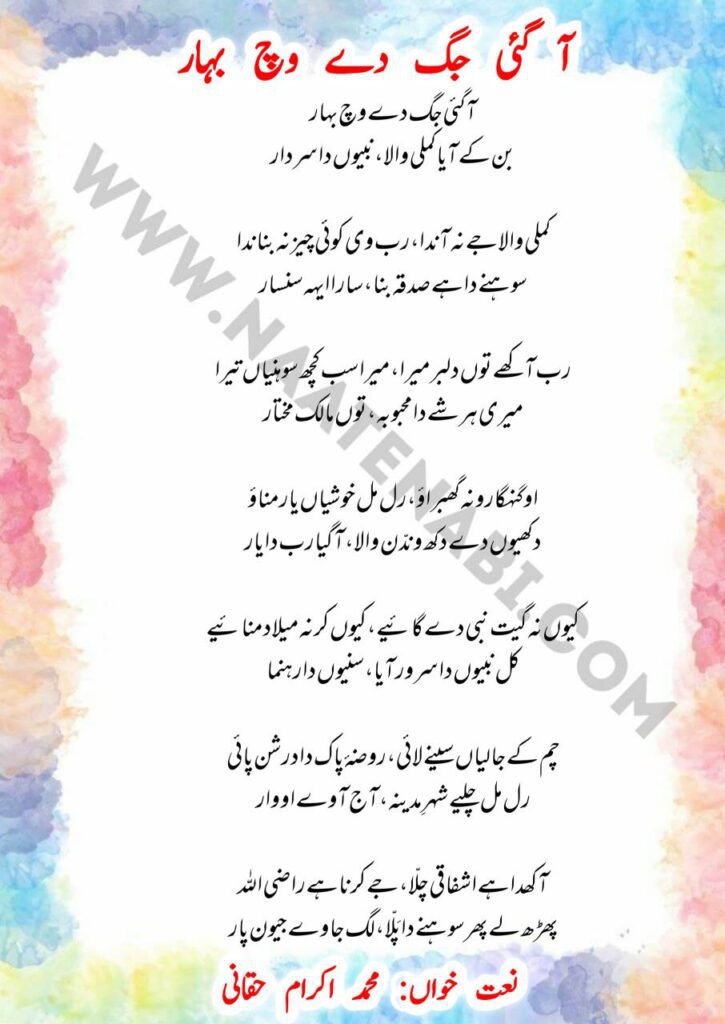 آ گئی جگ دے وچ بہار
آ گئی جگ دے وچ بہار
بن کے آیا کملی والا، نبیوں دا سردار
کملی والا جے نہ آندا، رب وی کوئی چیز نہ بناندا
سوہنے دا ہے صدقہ بنا، سارا ایہہ سنسار
رب آکھے توں دلبر میرا، میرا سب کچھ سوہنیاں تیرا
میری ہر شے دا محبوبہ، توں مالک مختار
او گنہگارو نہ گھبراؤ، رل مل خوشیاں یار مناؤ
دکھیوں دے دکھ ونڈن والا، آ گیا رب دا یار
کیوں نہ گیت نبی دے گائیے، کیوں کر نہ میلاد منائیے
کل نبیوں دا سرور آیا، سنیوں دا رہنما
چم کے جالیاں سینے لائی، روضۂ پاک دا درشن پائی
رل مل چلیے شہرِ مدینہ، آج آوے اووار
آکھدا ہے اشفاقی چلّا، جے کرنا ہے راضی اللہ
پھڑھ لے پھر سوہنے دا پلّا، لگ جاوے جیون پار
نعت خواں: محمد اکرام حقانی
WWW.NAATENABI.COM